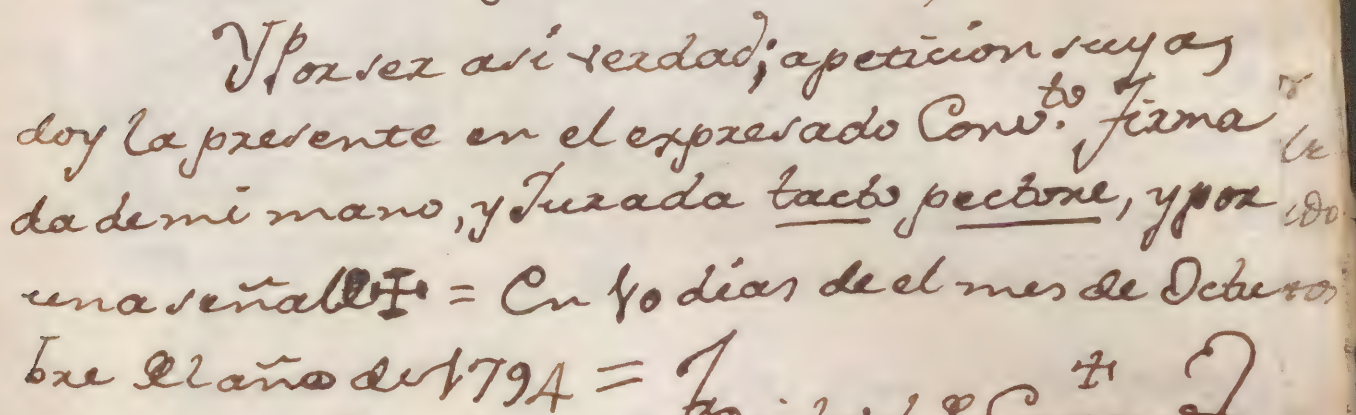 Y Por ser así verdad; a peticion suya,
doy la presente en el expresado Conv.to firma
da de mi mano, y Jurada tacto pectore, y por
una señal = En 10 dias de el mes de Octu
bre del año de 1794 =